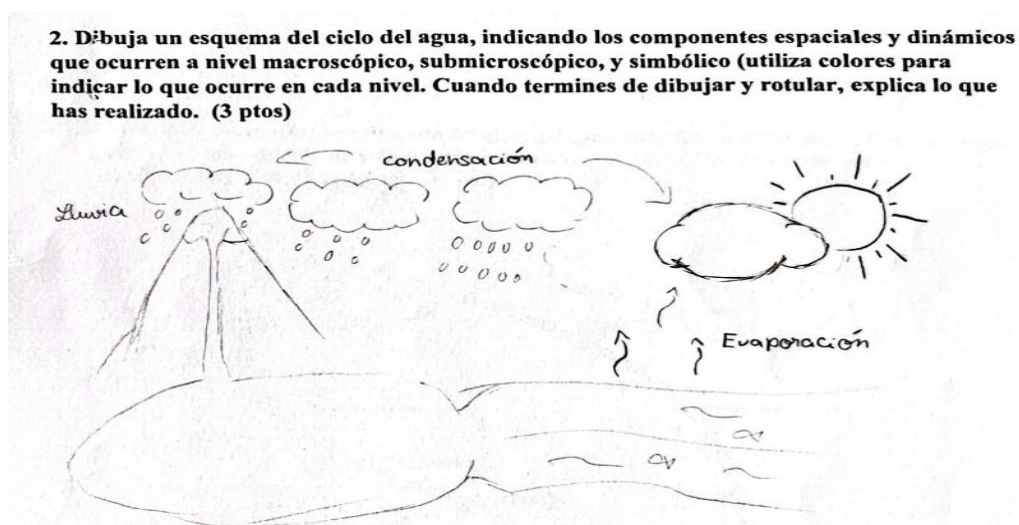 2. Dibuja un esquema del ciclo del agua, indicando los componentes espaciales y dinámicos
que ocurren a nivel macroscópico, submicroscópico, y simbólico (utiliza colores para
indicar lo que ocurre en cada nivel. Cuando termines de dibujar y rotular, explica lo que
has realizado. (3 ptos)
condensación
Lluvia
Evaporación